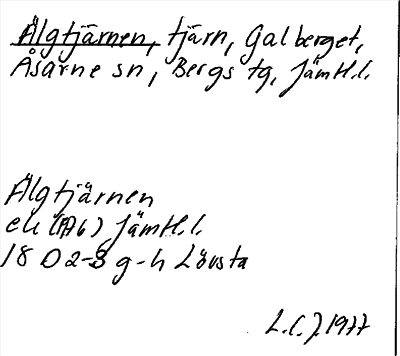 Älgtjärnen, tjärn, Galberget,
Åsarne sn, Bergs tg, Jämtl.l.
Älgtjärnen
ek (A6) Jämtl.l.
18 D 2-3 g-h Lövsta
L.C.J. 1977